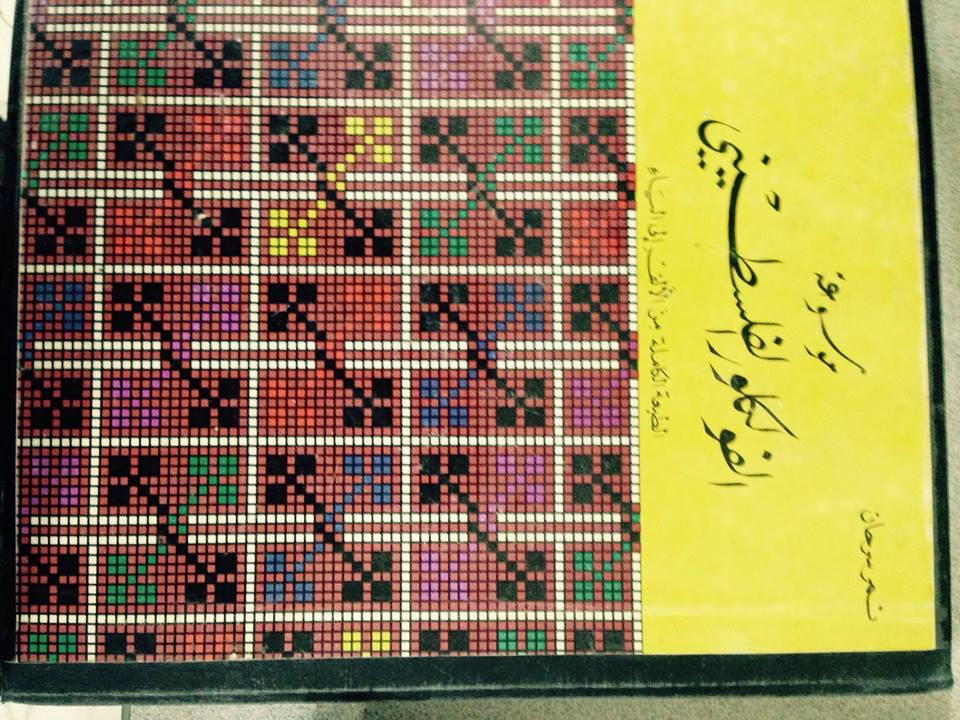 نمر سرحان
موسوعة
الفولكلور الفلسطيني
الطبعة الكاملة من الألف إلى الياء